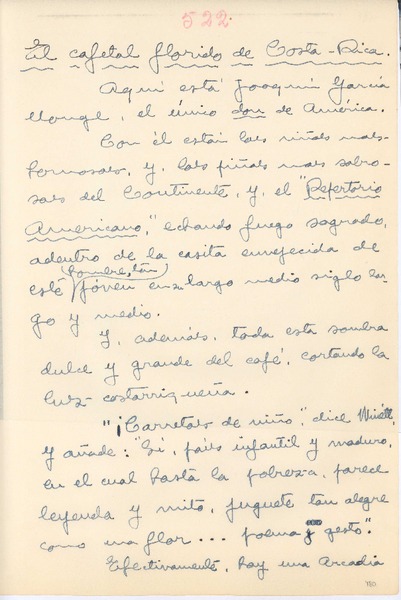 522.
El cafetal florido de Costa-Rica.
Aquí está Joaquín García
Monge, el único don de América.
Con él están las niñas más
hermosas, y, las piñas más sabro-
sas del Continente, y, el "Repertorio
Americano," echando fuego sagrado,
adentro de la casita envejecida de
hombre, tan
este joven en su largo medio siglo lar-
go y medio.
Y, además, toda esta sombra
dulce y grande del café, cortando la
luz costarriqueña.
"¡Carretas de niño," dice
y añade: "Sí, país infantil y maduro,
en el cual hasta la pobreza, parece
leyenda y mito, juguete tan alegre
como una flor... poema y gesto."
Efectivamente, hay una Arcadia